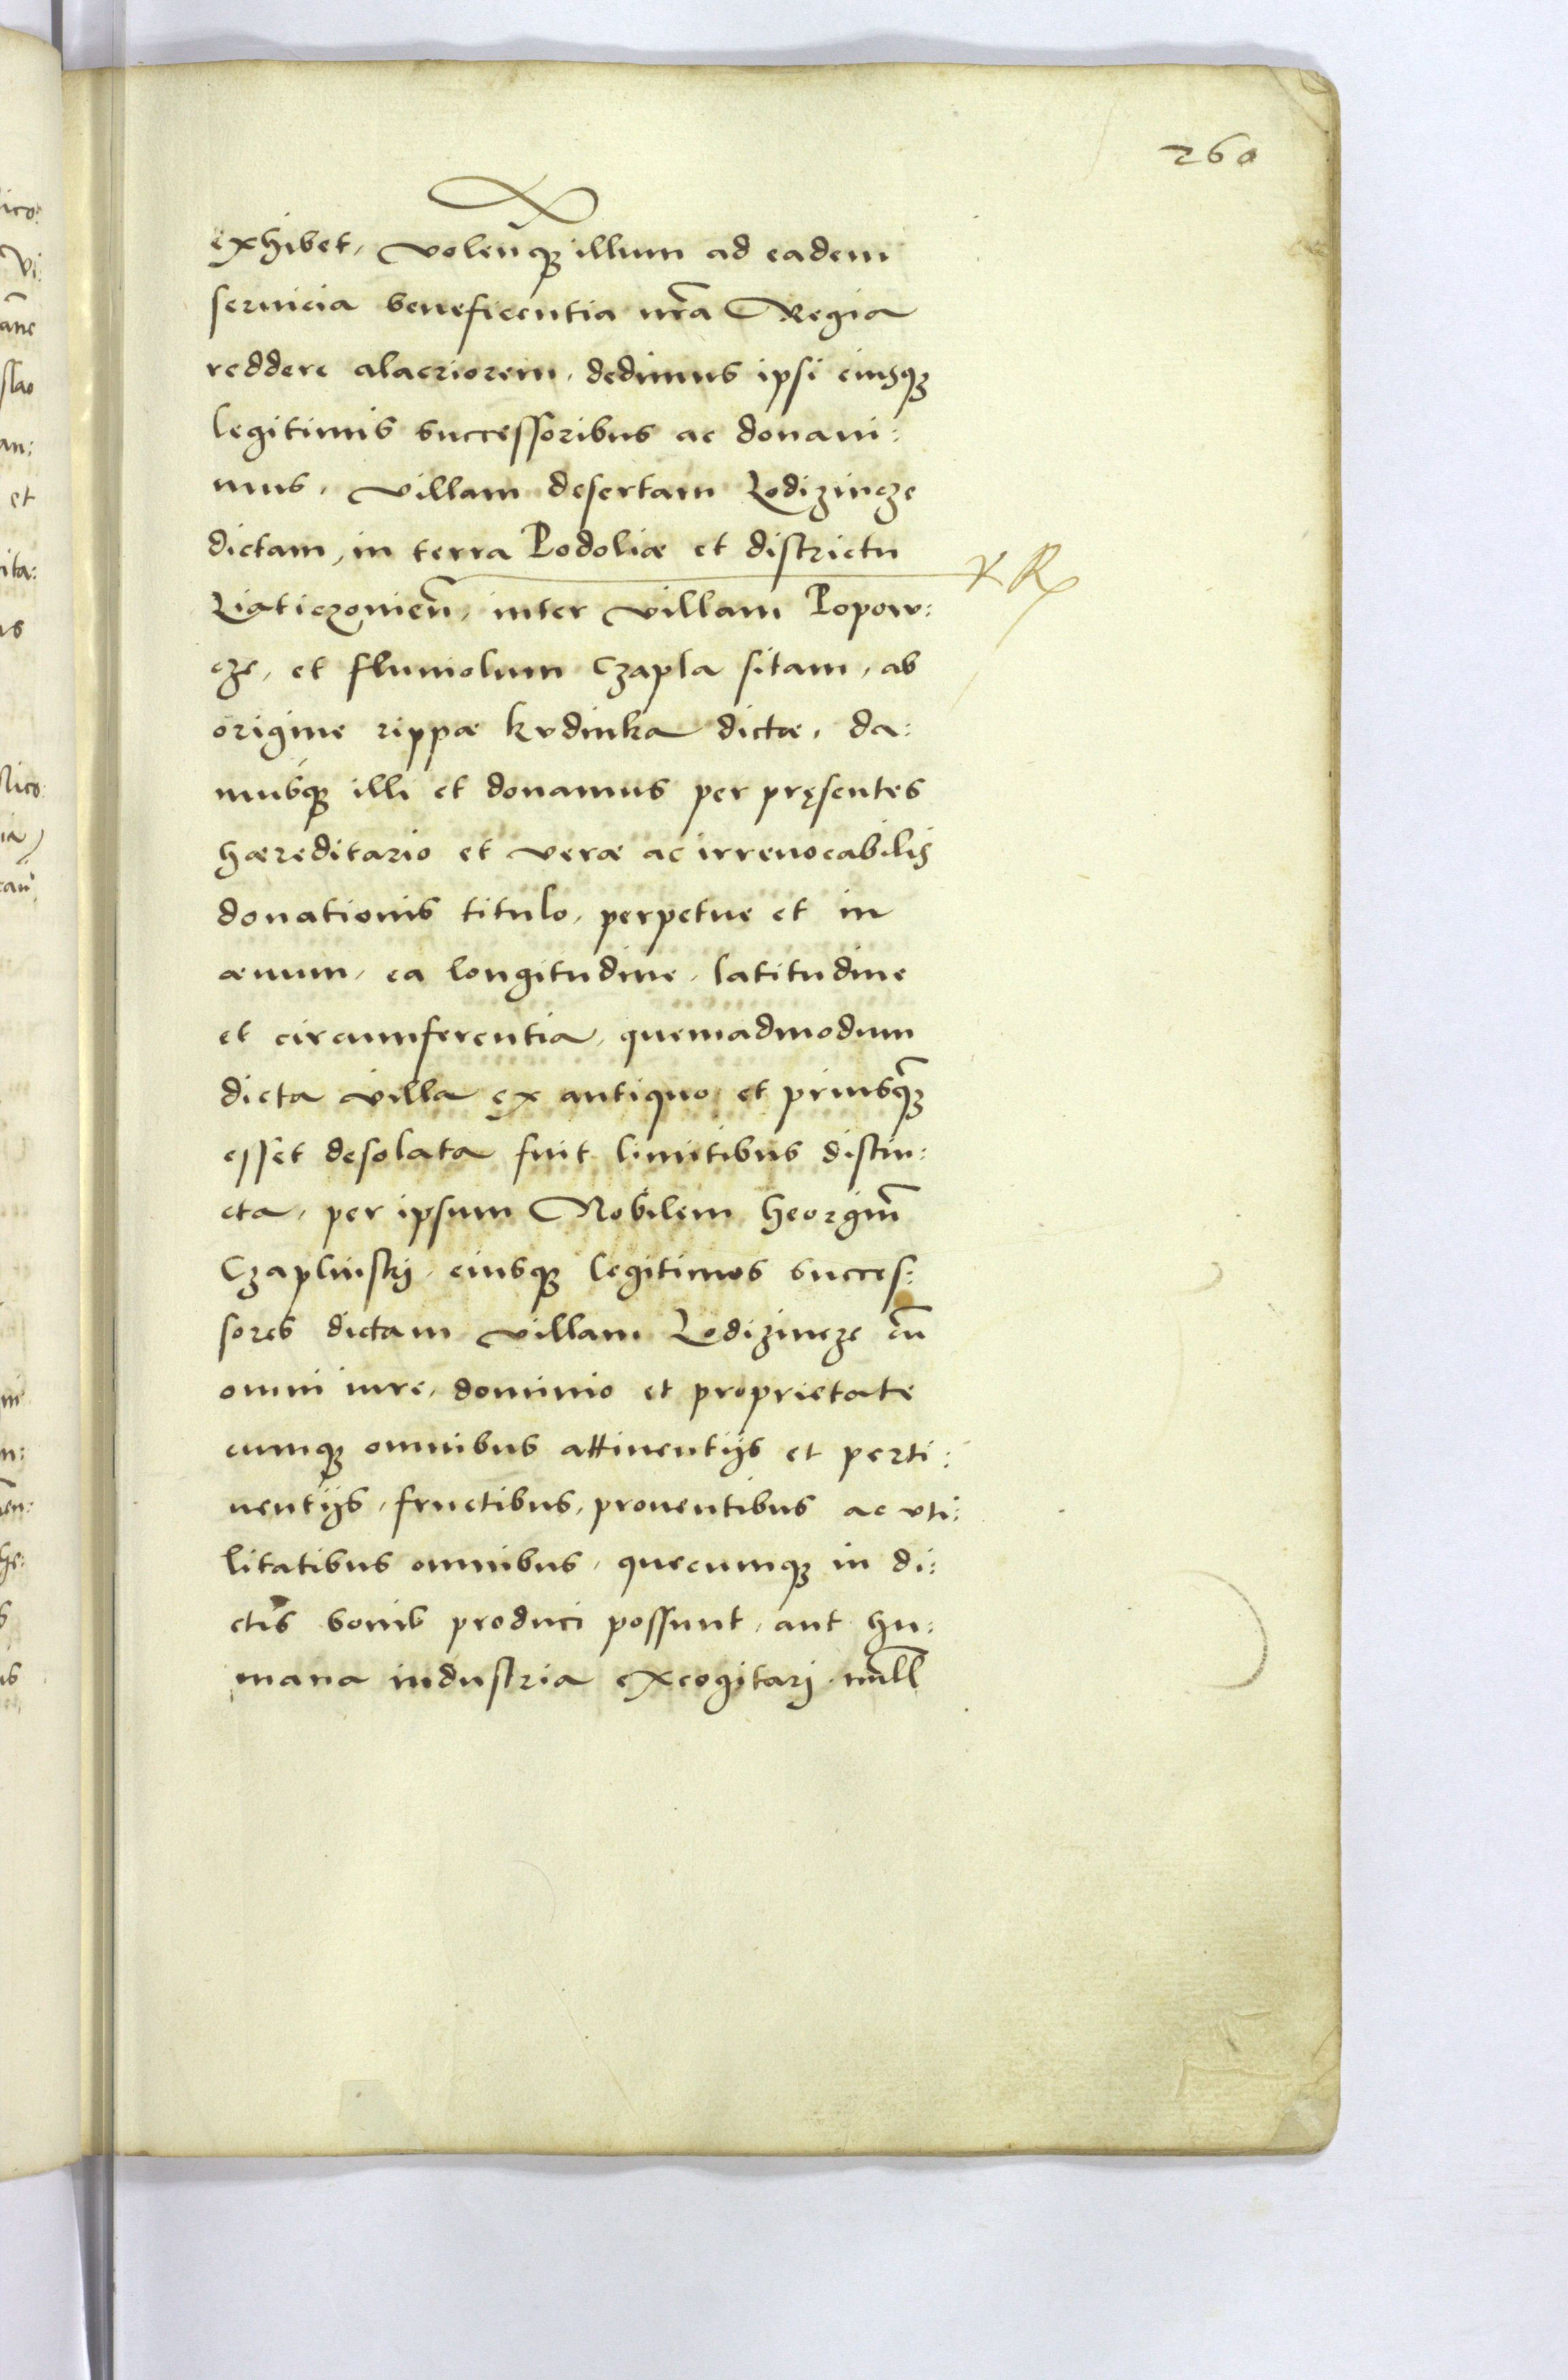 260
exhibet, volen̄q₃ illum ad eadem
seruicia beneficentia nr̃a Regia
reddere alacriorem, dedimus ipsi eiusq₃
legitimis successoribus ac donaui:
mus, villam desertam Lodizincze
dictam, in terra Podoliæ et districtu
Liaticzouien̄, inter villam Popow:
cze, et fluuiolum Czapla sitam, ab
origine rippæ kvdinka dictæ, da:
musq₃ illi et donamus per pręsentes
hæreditario et veræ ac irreuocabilis
donationis titulo, perpetue et in
æuum, ea longitudine, latitudine
et circumferentia, quemadmodum
dicta villa ex antiquo et priusq̃₃
esset desolata fuit limitibus distin:
cta, per ipsum Nobilem Heorgiu̅
Czaplinskij, eiusq₃ legitimos succes:
sores dictam villam Lodizincze cu̅
omni iure, dominio et proprietate
cumq₃ omnibus attinentijs et perti:
nentijs, fructibus, prouentibus ac vti:
litatibus omnibus, quecumq₃ in di:
ctis bonis produci possunt, aut hu:
mana industria excogitari, null̅